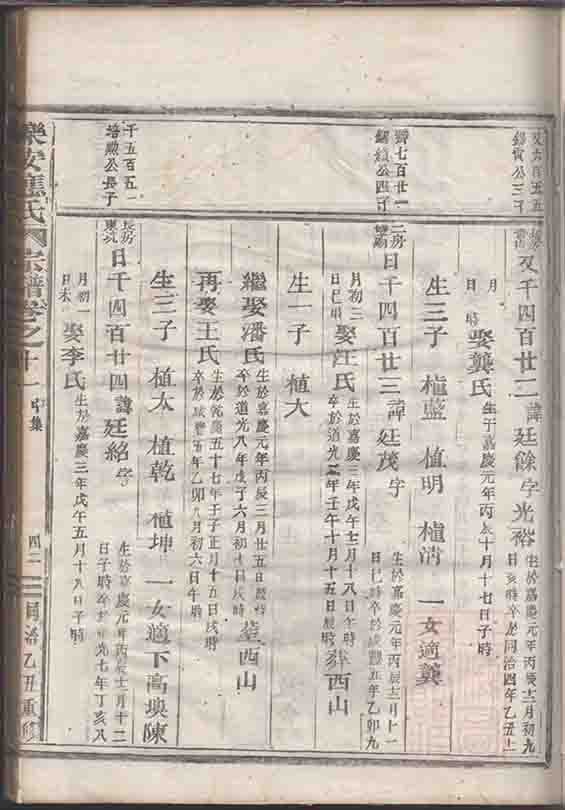 又六百五五
錫寅公三子
長房
又千四百廿二 諱廷餘字光裕
生於嘉慶元年丙辰十二月初九
日亥時卒於同治四年乙丑
月
日 時 娶龔氏 生于嘉慶元年丙辰十月十七日子時
生三子 植藍 植明 植清 一女適龔
齊七百廿一
公四子
二房
日千四百廿三 諱廷茂字
生於嘉慶元年丙辰十二月十一
日巳時卒於咸豐五年乙卯九
月初三
日巳時 娶汪氏
生於嘉慶三年戊午七月十八日午時
卒於道光二年壬午十月十五日辰時
葬西山
生一子 植大
繼娶潘氏
生於嘉慶元年丙辰三月廿五日辰時
卒於道光八年戊子六月初十日戌時
葬西山
再娶王氏
生於乾隆五十七年壬子正月十五日戌時
卒於咸豐五年乙卯八月初六日午時
生三子 植太 植乾 植坤 一女適下高塽陳
千五百五一
培勳公長子
長房
東坑
日千四百廿四 諱廷紹字
生於嘉慶元年丙辰十二月十二
日子時卒於道光七年丁亥八
月初一
日未 娶李氏 生於嘉慶三年戊午五月十八日子時
樂安應氏 宗譜卷之十一
集
四二
同治乙丑重修